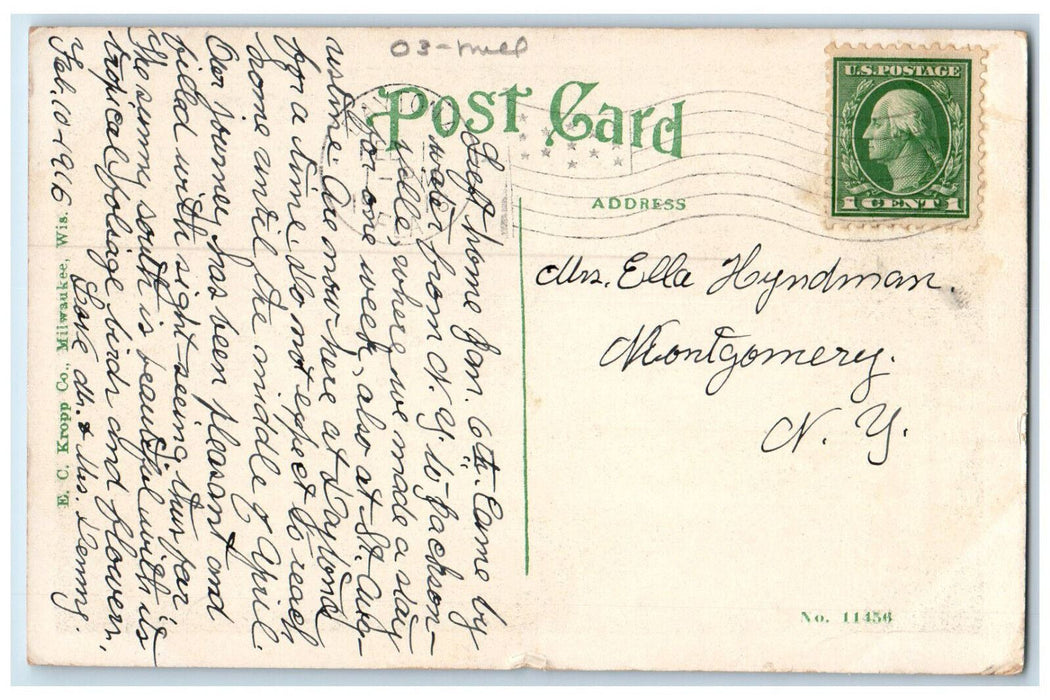 03-mell
Post Card
U.S. POSTAGE
1 CENT 1
ADDRESS
Mrs. Ella Hyndman.
Montgomery.
N. Y.
No. 11456
E. C. Kropp Co., Milwaukee, Wis.
Left home Jan. 6th. Came by
water from N. Y. to Jackson-
ville, where we made a stay
for one week, also at St. Aug-
ustine. Are now here at Daytona
for a time. Do not expect to reach
home until the middle of April.
Our journey has been pleasant and
filled with sight-seeing, thus far
The sunny south is beautiful with its
tropical foliage, birds and flowers,
Feb. 10-1916 Love Mr. & Mrs. Demmg.